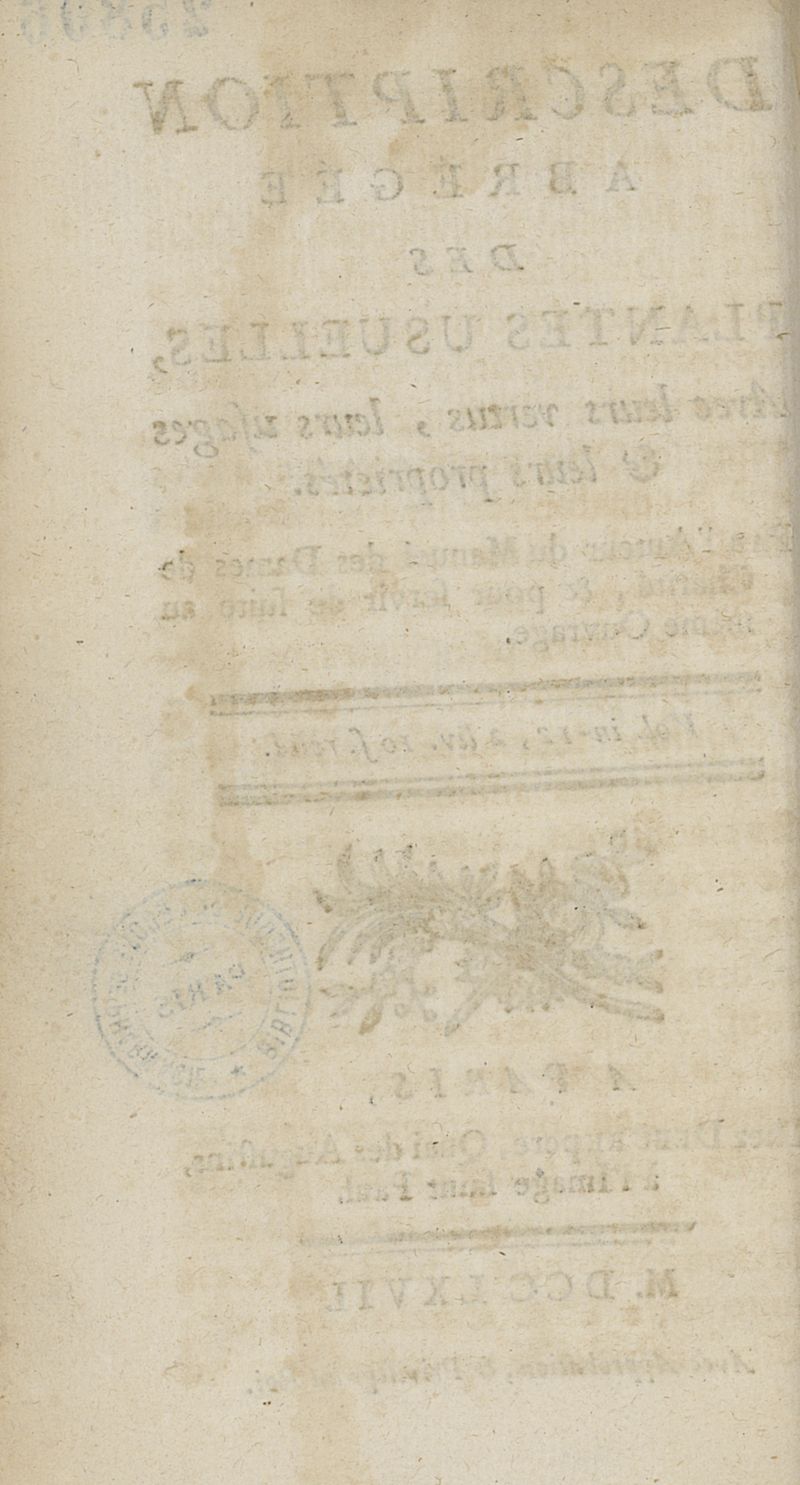 DESCRIPTION
ABRÉGÉE
DES
PLANTES USUELLES,
Avec leurs vertus, leurs usages
& leurs propriétés.
Par l'Auteur du Manuel des Dames de
Charité, & pour servir de suite au
même Ouvrage.
Vol. in-12, 2 liv. 10 s. relié.
A PARIS,
Chez DEBURE pere, Quai des Augustins,
à l'image saint Paul.
M. DCC LXVII
Avec Approbation, & Privilége du Roi.